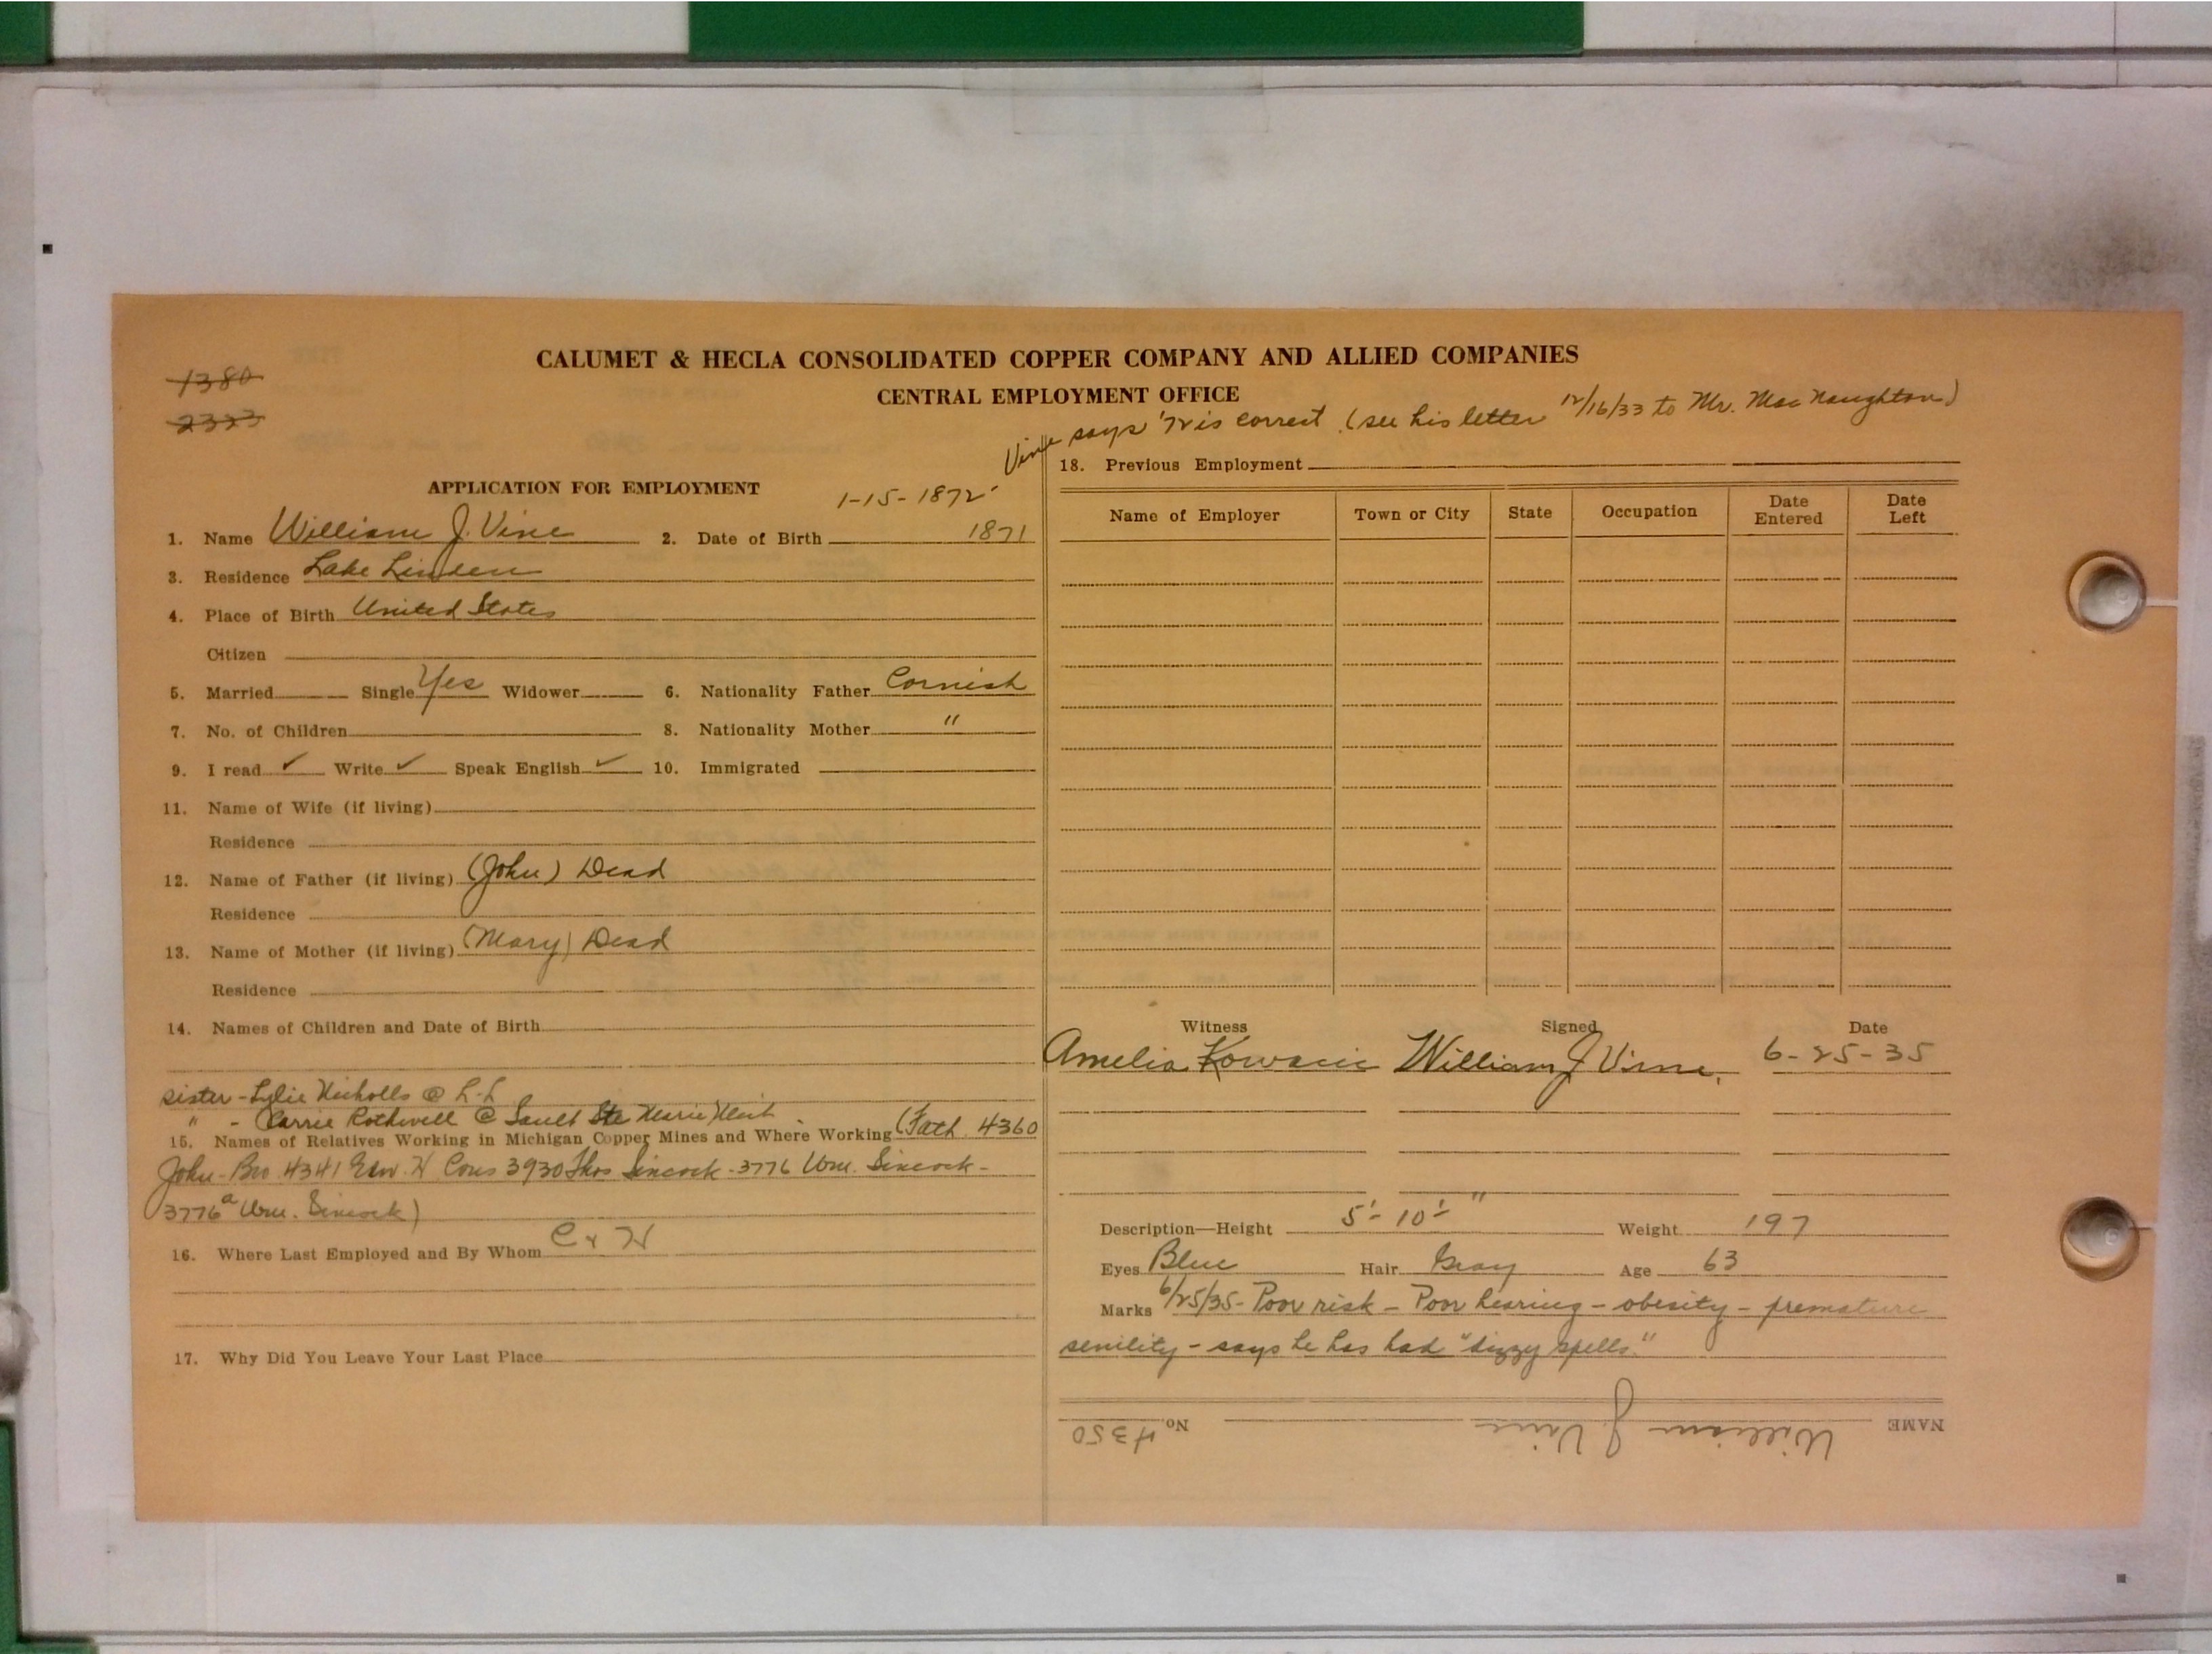 1380
2333
CALUMET & HECLA CONSOLIDATED COPPER COMPANY AND ALLIED COMPANIES
CENTRAL EMPLOYMENT OFFICE
Vine says '72 is correct (see his letter 12/16/33 to Mr. MacNaughton)
APPLICATION FOR EMPLOYMENT
1-15-1872
1. Name William J. Vine 2. Date of Birth 1871
3. Residence Lake Linden
4. Place of Birth United States
Citizen
5. Married Single Yes Widower 6. Nationality Father Cornish
7. No. of Children 8. Nationality Mother "
9. I read ✓ Write ✓ Speak English ✓ 10. Immigrated
11. Name of Wife (if living)
Residence
12. Name of Father (if living) (John) Dead
Residence
13. Name of Mother (if living) (Mary) Dead
Residence
14. Names of Children and Date of Birth
sister - Nicholls @ L-L
" - Carrie Rothwell @ Sault Ste Marie Mich
15. Names of Relatives Working in Michigan Copper Mines and Where Working (Fath. 4360
John - Bro 4341 Edw. H Cous 3930 Thos Sincock - 3776 Wm. Sincock -
3776a Wm. Sincock)
16. Where Last Employed and By Whom C & H
17. Why Did You Leave Your Last Place
18. Previous Employment
Name of Employer Town or City State Occupation Date Entered Date Left
Witness Signed Date
Amelia Kowacic William J Vine. 6-25-35
Description—Height 5'-10 1/2" Weight 197
Eyes Blue Hair Gray Age 63
Marks 6/25/35 - Poor risk - Poor hearing - obesity - premature
senility - says he has had "dizzy spells."
NAME William J. Vine No. 4350